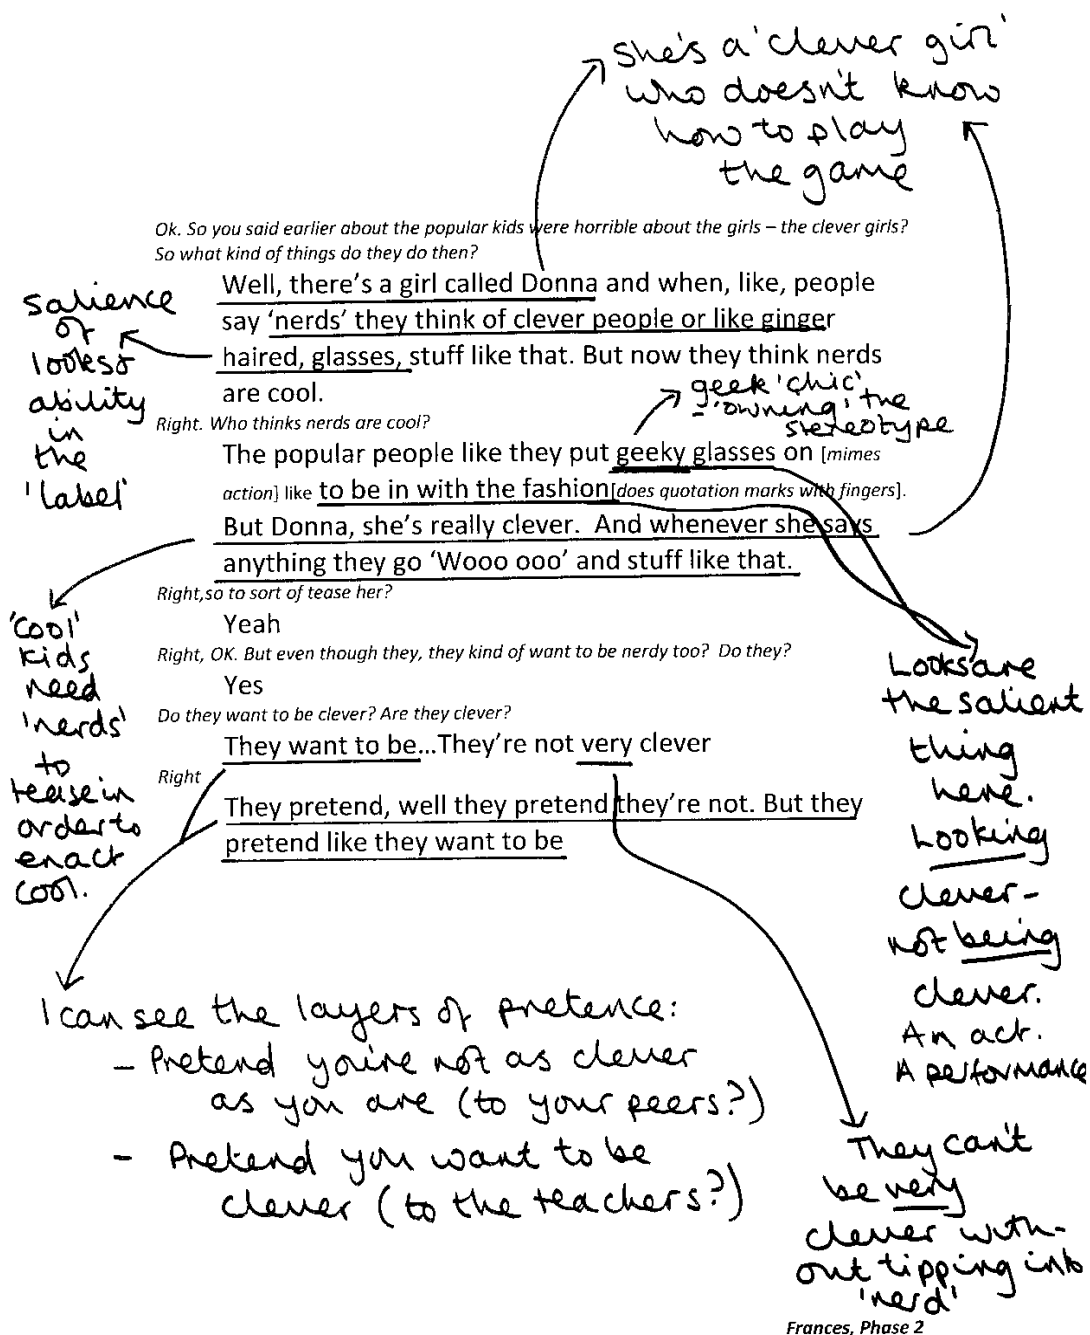 She's a 'clever girl'
who doesn't know
how to play
the game
Ok. So you said earlier about the popular kids were horrible about the girls – the clever girls?
So what kind of things do they do then?
Well, there's a girl called Donna and when, like, people
say 'nerds' they think of clever people or like ginger
haired, glasses, stuff like that. But now they think nerds
are cool.
salience
of
looks &
ability
in
the
'label'
geek 'chic'
- 'owning' the
stereotype
Right. Who thinks nerds are cool?
The popular people like they put geeky glasses on [mimes
action] like to be in with the fashion[does quotation marks with fingers].
But Donna, she's really clever. And whenever she says
anything they go 'Wooo ooo' and stuff like that.
Right,so to sort of tease her?
Yeah
Right, OK. But even though they, they kind of want to be nerdy too? Do they?
Yes
Do they want to be clever? Are they clever?
They want to be...They're not very clever
Right
They pretend, well they pretend they're not. But they
pretend like they want to be
'cool'
kids
need
'nerds'
to
tease in
order to
enact
cool.
Looks are
the salient
thing
here.
Looking
clever -
not being
clever.
An act.
A performance
I can see the layers of pretence:
- Pretend you're not as clever
as you are (to your peers?)
- Pretend you want to be
clever (to the teachers?)
They can't
be very
clever with-
out tipping into
'nerd'
Frances, Phase 2